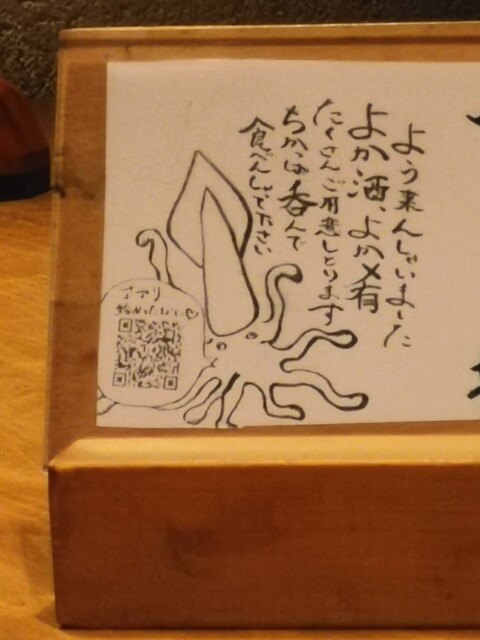 よう来んしゃいました
よか酒、よか〆有
たくさんご用意しとります
ちかっぱ呑んで
食べんしゃて下さい
アプリ